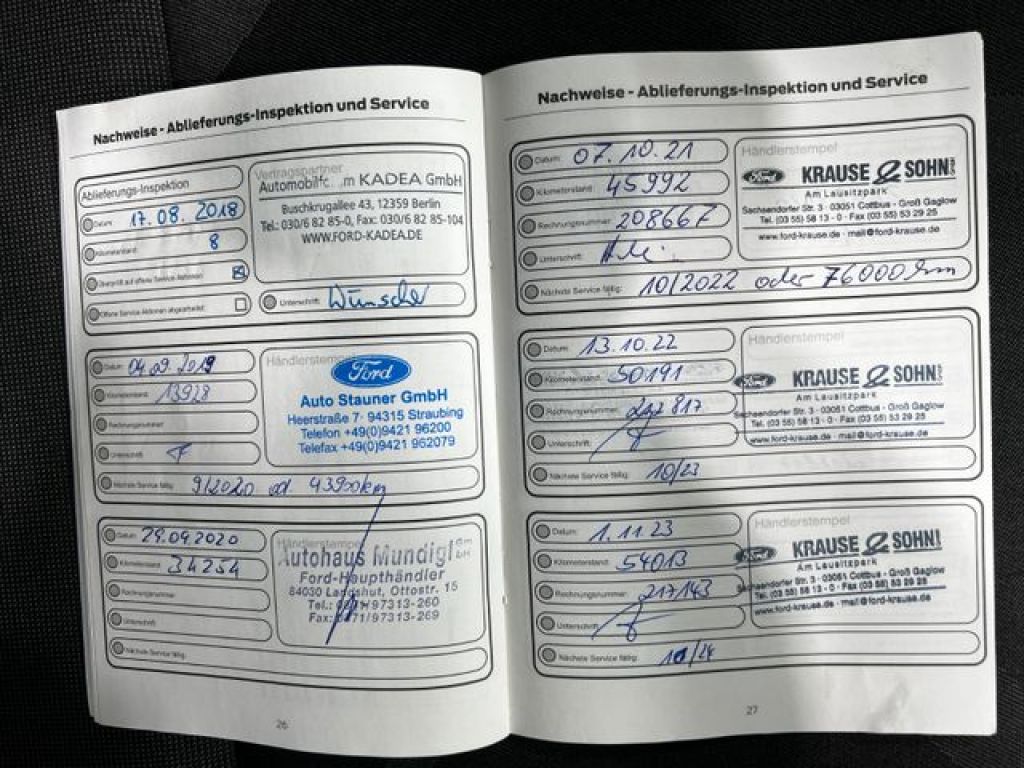 Nachweise - Ablieferungs-Inspektion und Service
Ablieferungs-Inspektion
Datum: 17.08.2018
Kilometerstand: 8
Überprüft auf offene Service-Aktionen
Offene Service Aktionen abgearbeitet:
Vertragspartner
KADEA GmbH
Buschkrugallee 43, 12359 Berlin
Tel.: 030/6 82 85-0, Fax: 030/6 82 85-104
WWW.FORD-KADEA.DE
Unterschrift: Wünscher
Datum: 04.09.2019
Kilometerstand: 13928
Rechnungsnummer:
Unterschrift:
Händlerstempel
Ford
Auto Stauner GmbH
Heerstraße 7 · 94315 Straubing
Telefon +49(0)9421 96200
Telefax +49(0)9421 962079
Nächste Service fällig: 9/2020 od. 43900km
Datum: 29.09.2020
Kilometerstand: 34254
Rechnungsnummer:
Unterschrift:
Händlerstempel
Autohaus Mundigl GmbH
Ford-Haupthändler
84030 Landshut, Ottostr. 15
Tel.: 0871/97313-260
Fax: 0871/97313-269
Nächste Service fällig:
26
Nachweise - Ablieferungs-Inspektion und Service
Datum: 07.10.21
Kilometerstand: 45992
Rechnungsnummer: 208667
Unterschrift:
Händlerstempel
Ford KRAUSE & SOHN GmbH
Am Lausitzpark
Sachsendorfer Str. 3 · 03051 Cottbus - Groß Gaglow
Tel. (03 55) 58 13 - 0 · Fax (03 55) 53 29 25
www.ford-krause.de · mail@ford-krause.de
Nächste Service fällig: 10/2022 oder 76000km
Datum: 13.10.22
Kilometerstand: 50191
Rechnungsnummer: 217817
Unterschrift:
Händlerstempel
Ford KRAUSE & SOHN GmbH
Am Lausitzpark
Sachsendorfer Str. 3 · 03051 Cottbus - Groß Gaglow
Tel. (03 55) 58 13 - 0 · Fax (03 55) 53 29 25
www.ford-krause.de · mail@ford-krause.de
Nächste Service fällig: 10/23
Datum: 1.11.23
Kilometerstand: 54013
Rechnungsnummer: 217143
Unterschrift:
Händlerstempel
Ford KRAUSE & SOHN GmbH
Am Lausitzpark
Sachsendorfer Str. 3 · 03051 Cottbus - Groß Gaglow
Tel. (03 55) 58 13 - 0 · Fax (03 55) 53 29 25
www.ford-krause.de · mail@ford-krause.de
Nächste Service fällig: 10/24
27